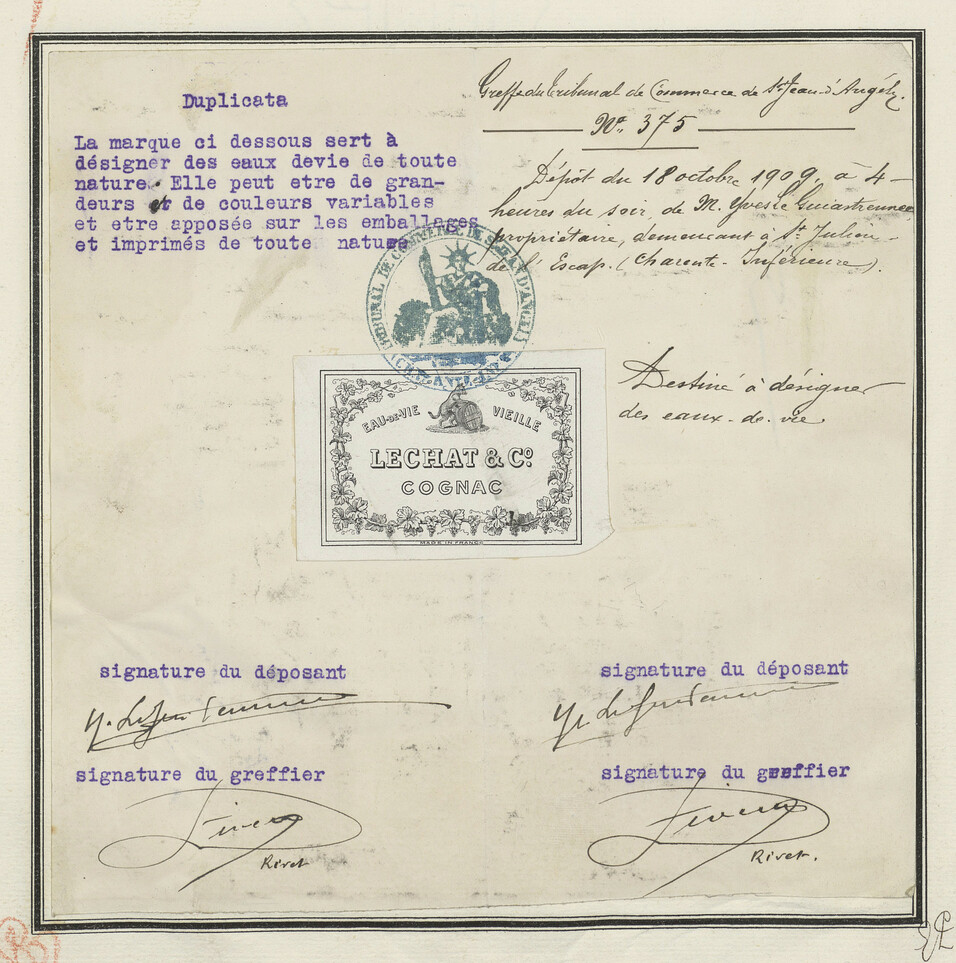 Duplicata
La marque ci dessous sert à
désigner des eaux devie de toute
nature. Elle peut etre de gran-
deurs et de couleurs variables
et etre apposée sur les emballages
et imprimés de toute nature
Greffe du Tribunal de Commerce de St Jean-d'Angély.
No. 375
Dépôt du 18 octobre 1909, à 4
heures du soir, de M. Yves Le
propriétaire, demeurant à St Julien-
de l'Escap. (Charente-Inférieure).
TRIBUNAL DE COMMERCE DE ST JEAN D'ANGELY
Destiné à désigner
des eaux-de-vie
EAU-DE-VIE VIEILLE
LECHAT & Co.
COGNAC
MADE IN FRANCE
signature du déposant
signature du greffier
Rivet
signature du déposant
signature du greffier
Rivet.